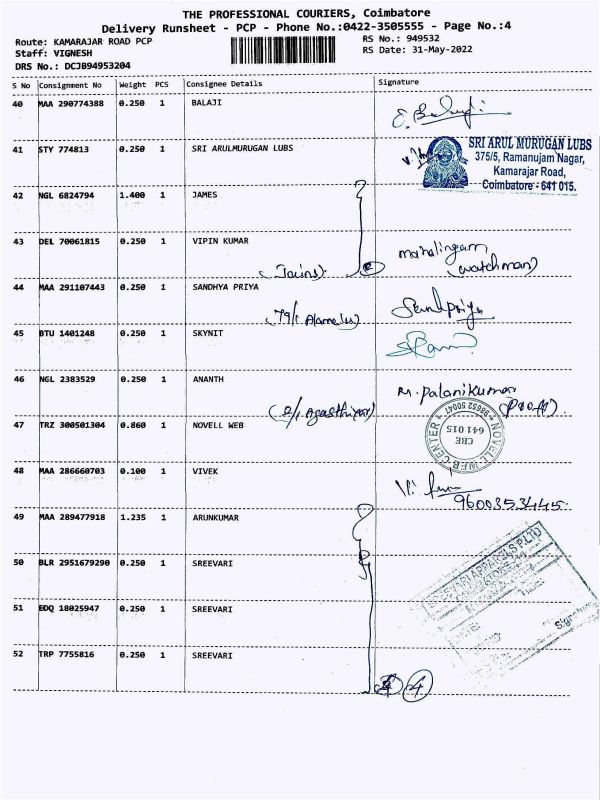 THE PROFESSIONAL COURIERS, Coimbatore
Delivery Runsheet - PCP - Phone No.:0422-3505555 - Page No.:4
Route: KAMARAJAR ROAD PCP
RS No.: 949532
Staff: VIGNESH
RS Date: 31-May-2022
DRS No.: DCJB94953204
S No Consignment No Weight PCS Consignee Details Signature
40 MAA 290774388 0.250 1 BALAJI
41 STY 774813 0.250 1 SRI ARULMURUGAN LUBS
SRI ARUL MURUGAN LUBS
375/5, Ramanujam Nagar,
Kamarajar Road,
Coimbatore - 641 015.
42 NGL 6824794 1.400 1 JAMES
43 DEL 70061815 0.250 1 VIPIN KUMAR
mahalingam
(Jains) (watchman)
44 MAA 291107443 0.250 1 SANDHYA PRIYA
45 BTU 1401248 0.250 1 SKYNIT
46 NGL 2383529 0.250 1 ANANTH
M. Palanikumar
47 TRZ 300501304 0.860 1 NOVELL WEB
NOVELL WEB CENTER
CBE
641 015
48 MAA 286660703 0.100 1 VIVEK
9600353445
49 MAA 289477918 1.235 1 ARUNKUMAR
50 BLR 2951679290 0.250 1 SREEVARI
51 EDQ 18025947 0.250 1 SREEVARI
52 TRP 7755816 0.250 1 SREEVARI
4